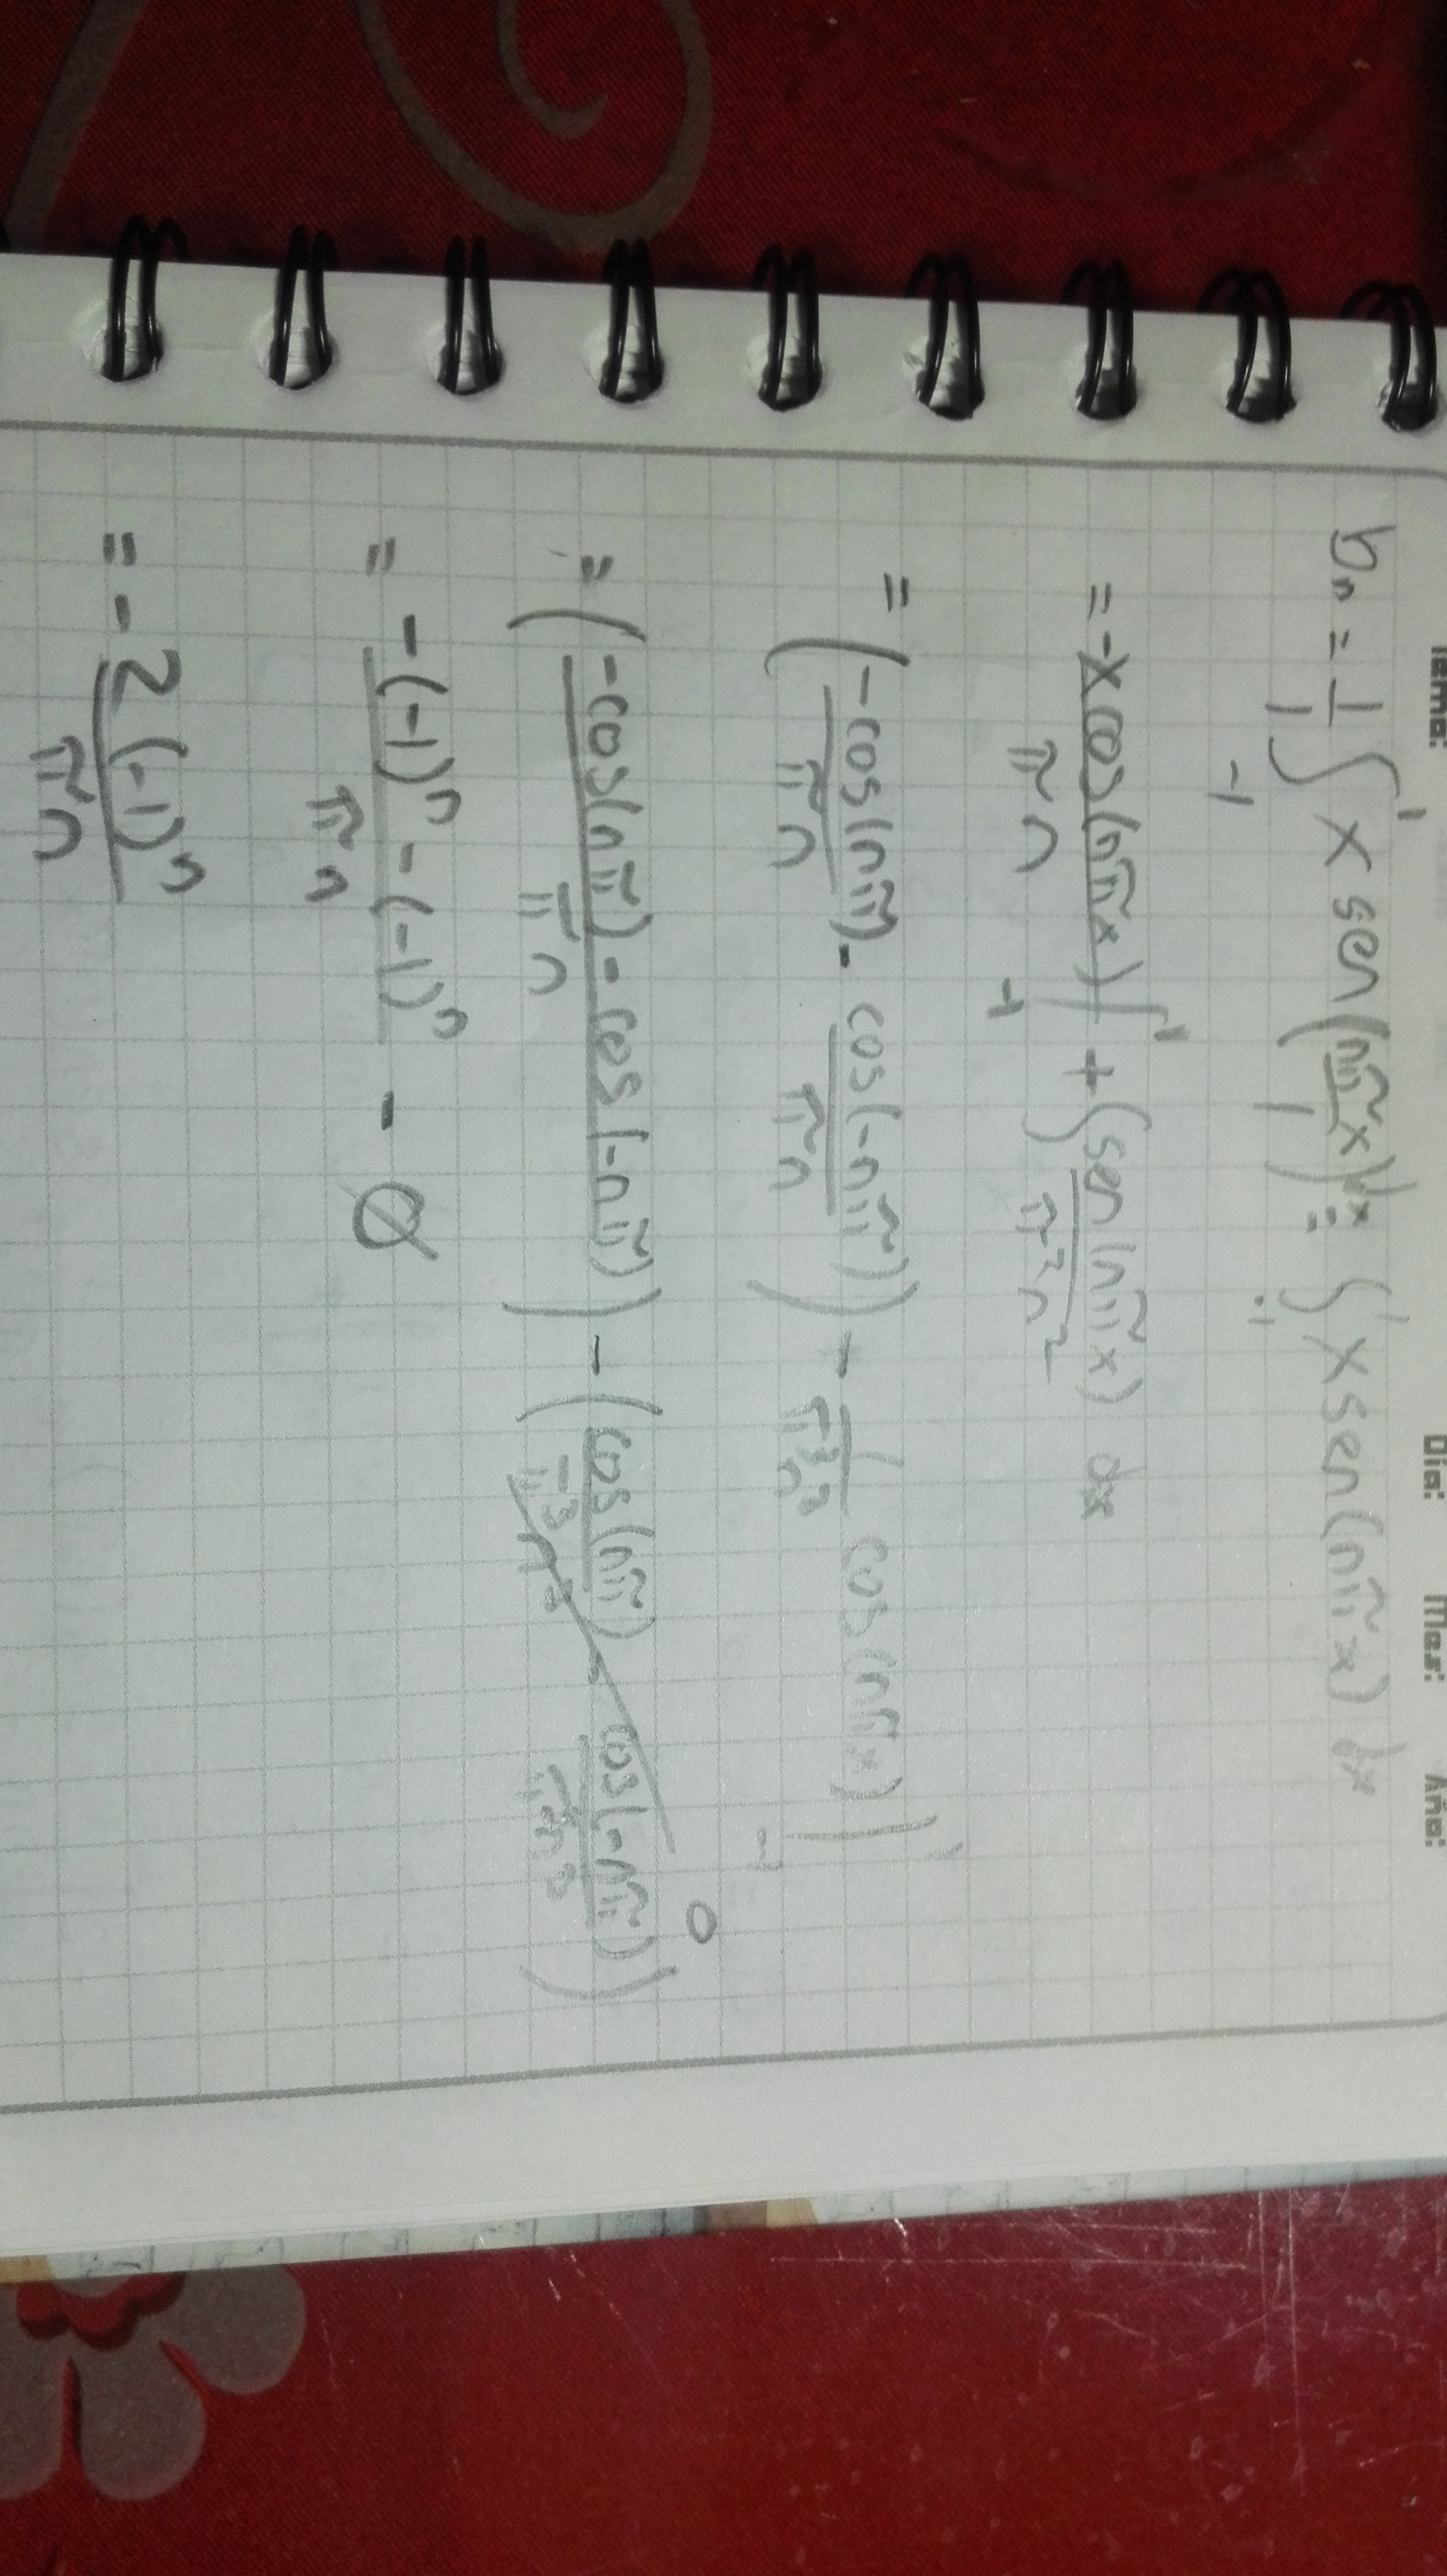 Tema: Dia: Mes: Año:
bₙ = 1/1 ∫₋₁¹ x sen(nπx/1) dx = ∫₋₁¹ x sen(nπx) dx
= -x cos(nπx)/πn |₋₁¹ + ∫ sen(nπx)/π²n² dx
= (-cos(nπ)/πn - cos(-nπ)/πn) - 1/π³n³ cos(nπx) |₋₁¹
= (-cos(nπ) - cos(-nπ)/πn) - (cos(nπ)/π³n³ - cos(-nπ)/π³n³) 0
= -(-1)ⁿ - (-1)ⁿ/πn - Ø
= -2(-1)ⁿ/πn